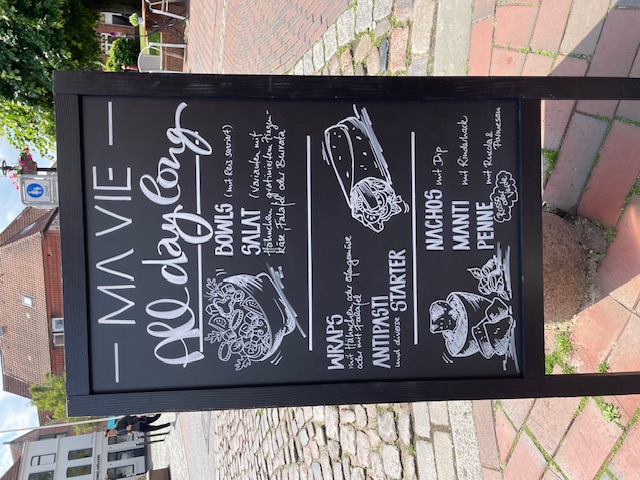 MA VIE
All day long
BOWLS (mit Reis serviert)
SALAT (Varianten mit
Hähnchen, gratinierten Ziegen-
käse, Falafel oder Burrata)
WRAPS
mit Hähnchen oder Ofengemüse
oder mit Falafel
ANTIPASTI
und diverse STARTER
NACHOS mit Dip
MANTI mit Rinderhack
PENNE mit Rucola &
Parmesan